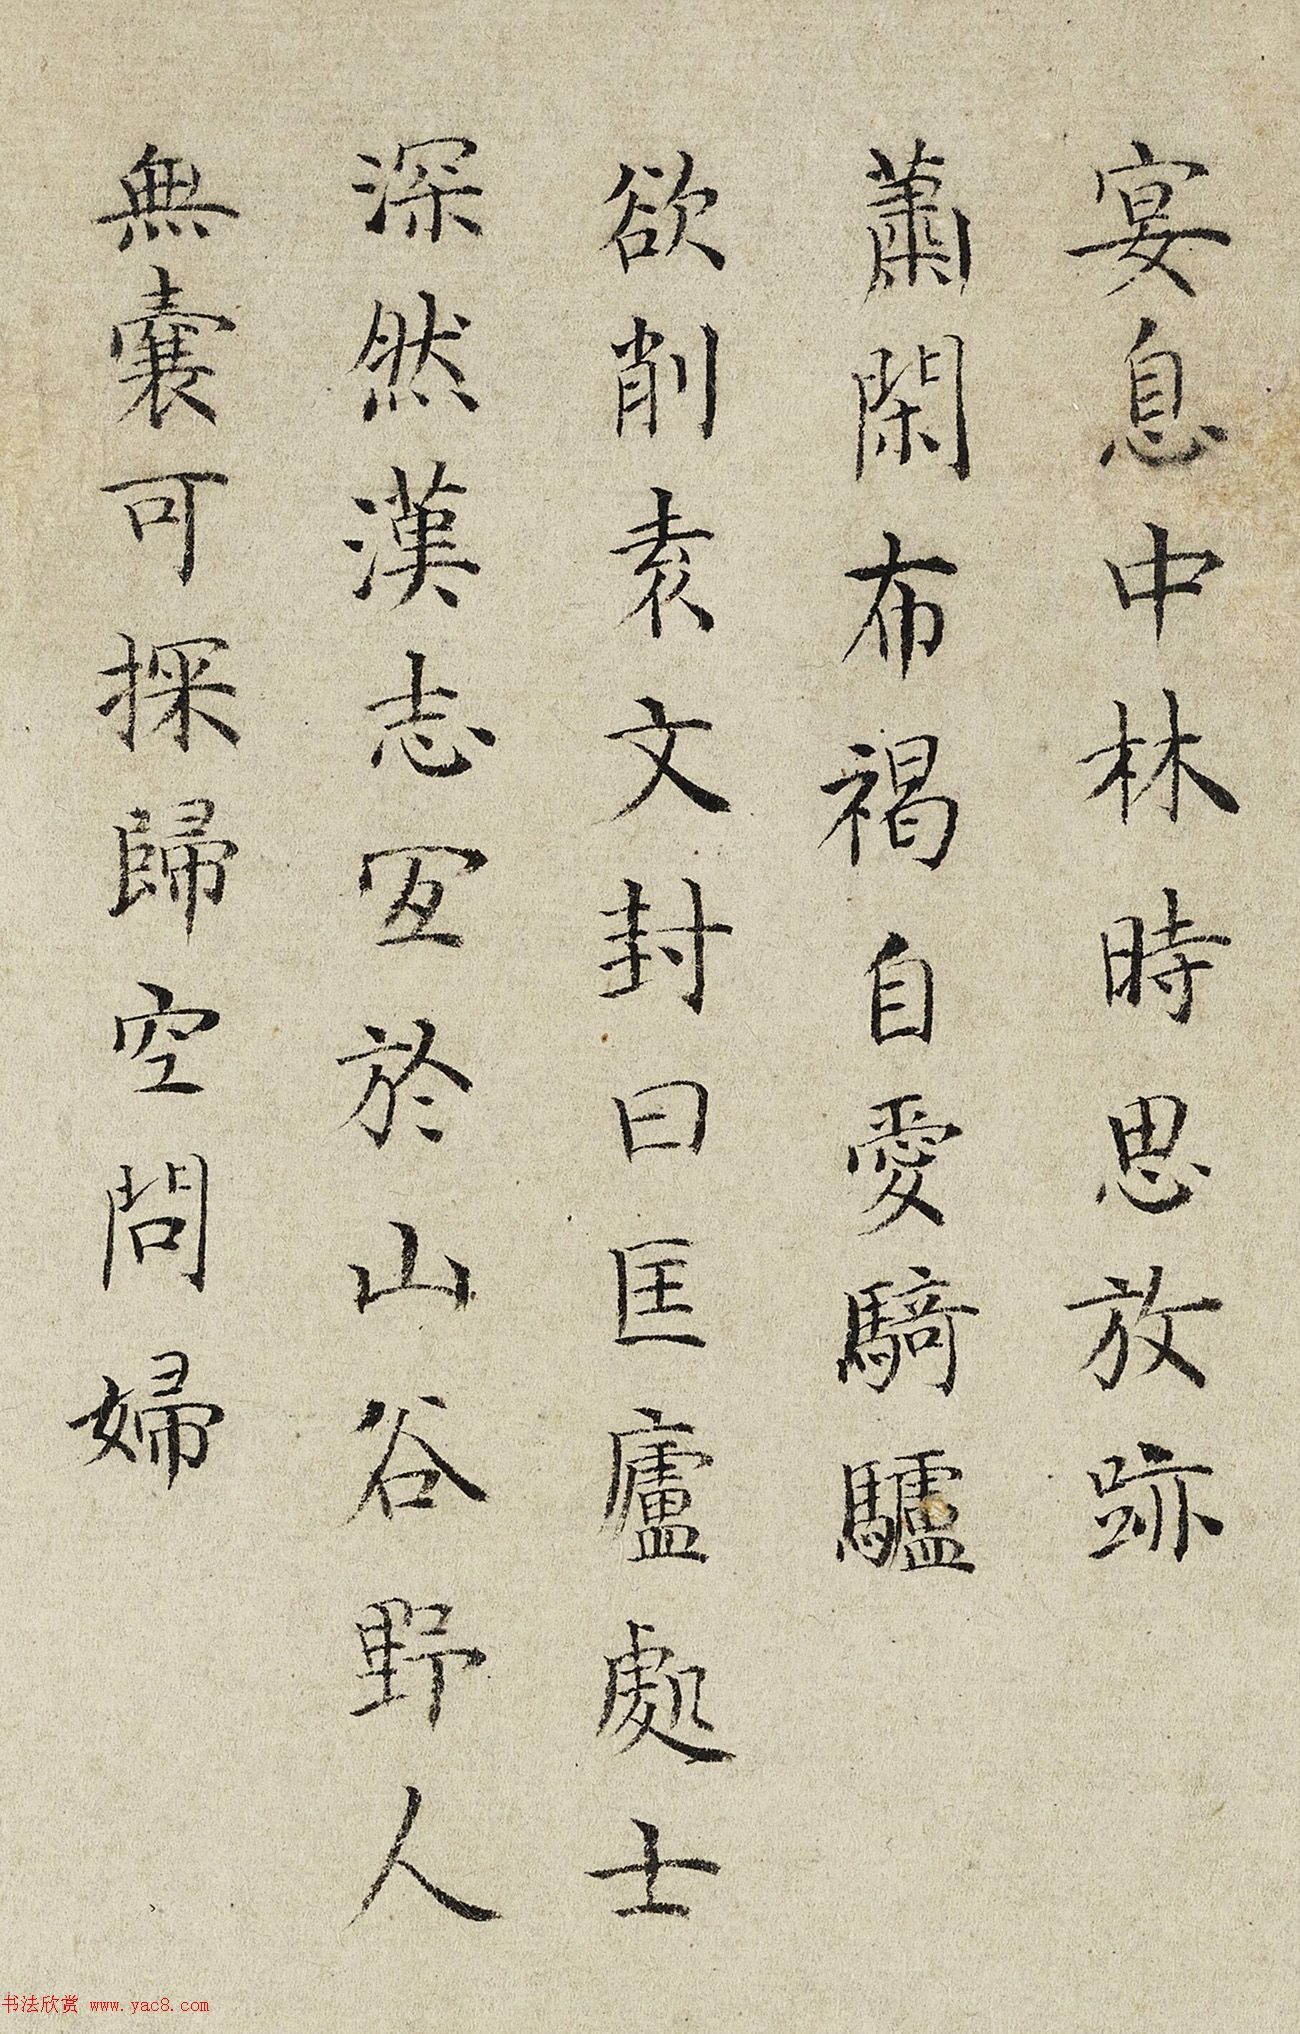 宴息中林時思放跡
蕭閑布褐自愛騎驢
欲削素文封曰匡廬處士
深然漢志宜於山谷野人
無囊可探歸空問婦
书法欣赏 www.yac8.com